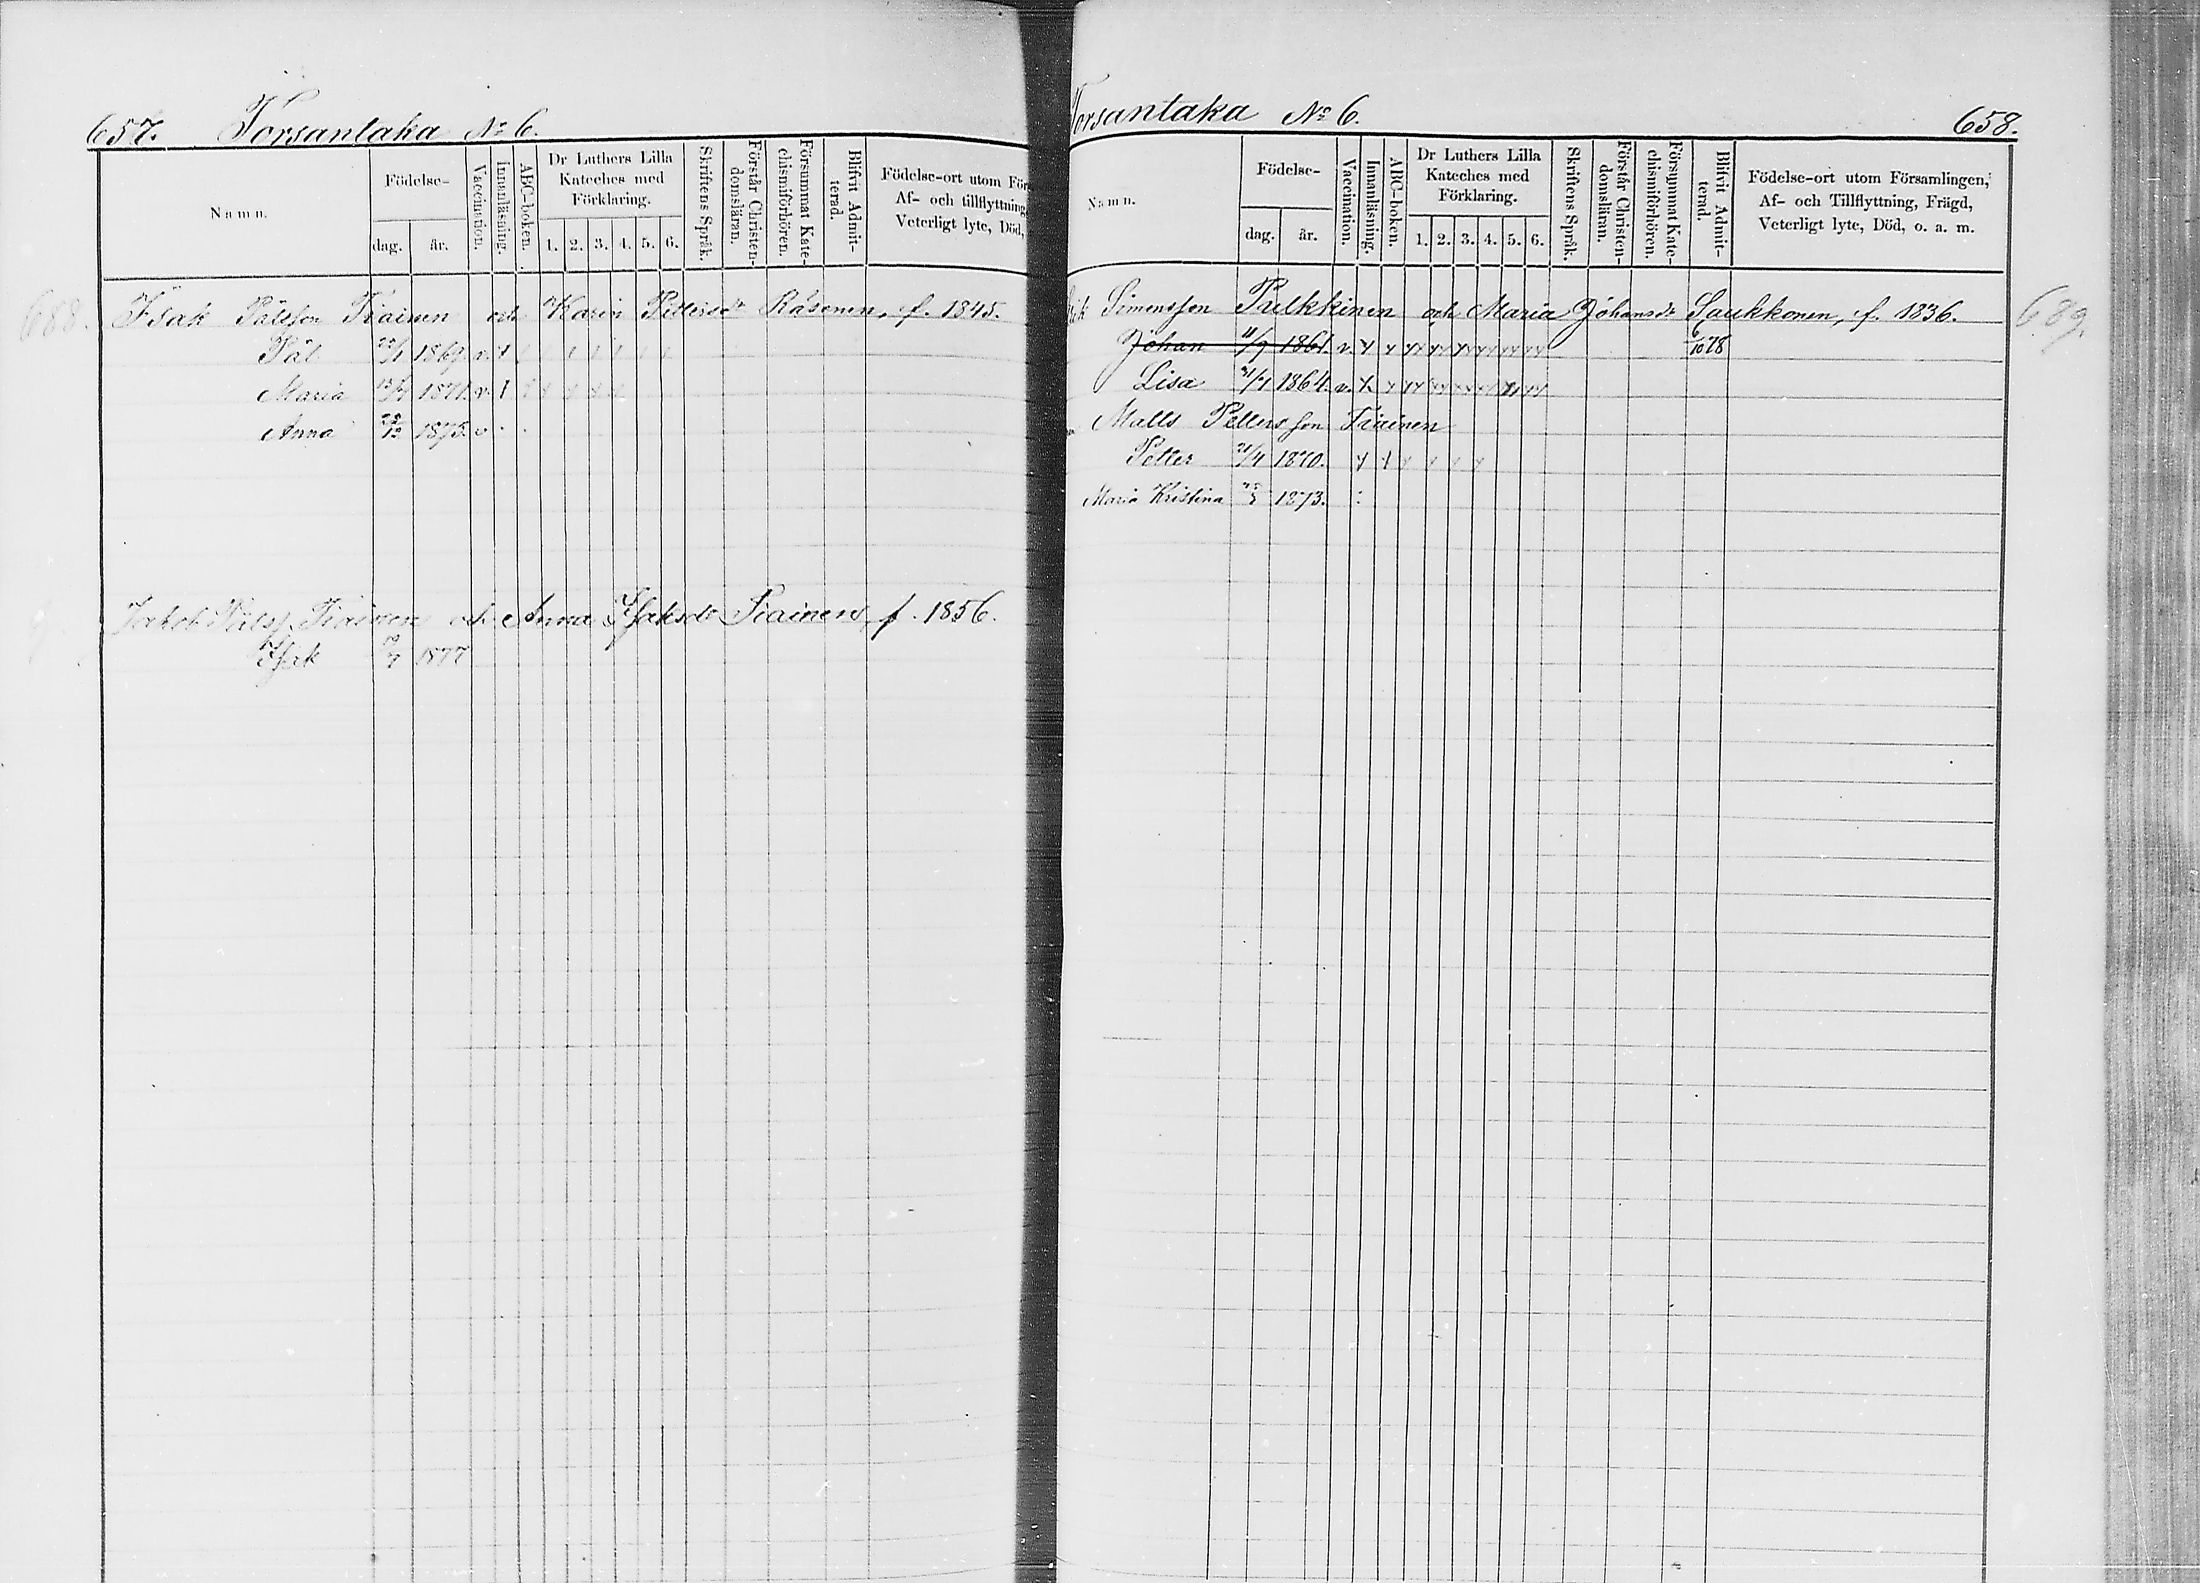 657. Torsantaka No 6.
Namn.
Födelse-
dag. år.
Vaccination.
Innanläsning.
ABC-boken.
Dr Luthers Lilla Kateches med Förklaring.
1. 2. 3. 4. 5. 6.
Skriftens Språk.
Förstår Christendomsläran.
Försummat Katechismiförhören.
Blifvit Admitterad.
Födelse-ort utom För
Af- och tillflyttning,
Veterligt lyte, Död,
688. Isak Pålsson Tiainen och Karin Pettersdr Räsänen, f. 1845.
Pål 1869. v.
Maria 1871. v.
Anna 1875. v
Jakob Pålss. Tiainen och Anna Isaksdr Piainen, f. 1856.
Isak 1877
Torsantaka No 6. 658.
Namn.
Födelse-
dag. år.
Vaccination.
Innanläsning.
ABC-boken.
Dr Luthers Lilla Kateches med Förklaring.
1. 2. 3. 4. 5. 6.
Skriftens Språk.
Förstår Christendomsläran.
Försummat Katechismiförhören.
Blifvit Admitterad.
Födelse-ort utom Församlingen,
Af- och Tillflyttning, Frägd,
Veterligt lyte, Död, o. a. m.
Simonsson Pulkkinen och Maria Johansdr Laukkonen, f. 1836. 689.
Johan 11/9 1861. v. 6/10 78
Lisa 21/1 1864. v.
Matts Pettersson Tiainen
Petter 21/4 1870.
Maria Kristina 1873.